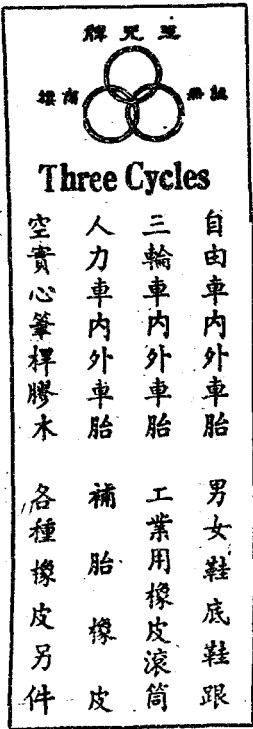 註冊商標
Three Cycles
自由車内外車胎
三輪車内外車胎
人力車内外車胎
空實心筆桿膠木
男女鞋底鞋跟
工業用橡皮滾筒
補胎橡皮
各種橡皮另件